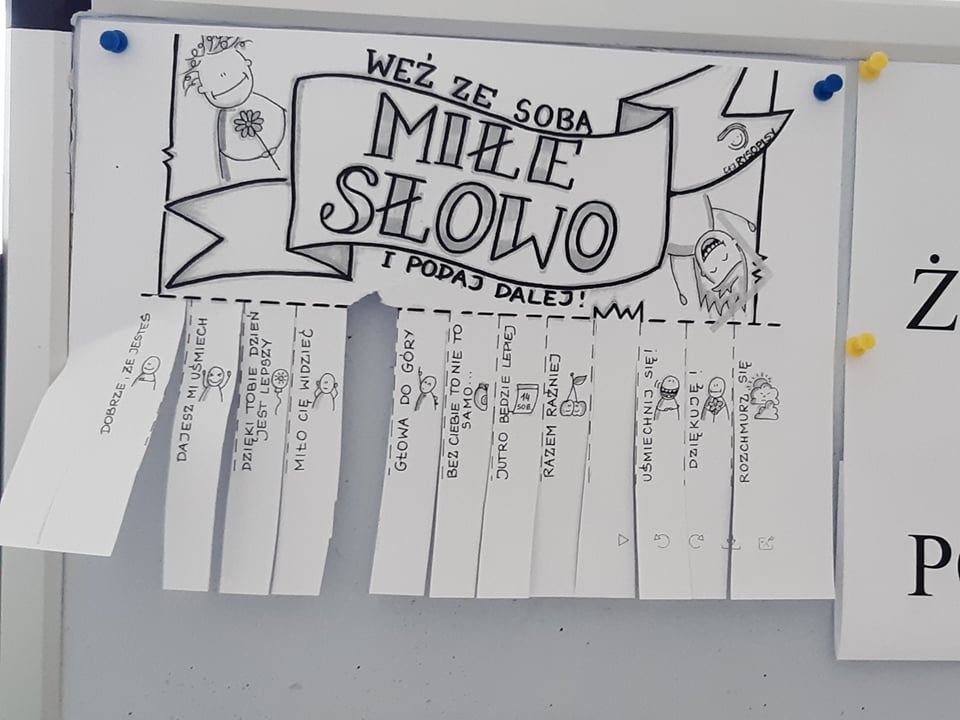 WEŹ ZE SOBĄ
MIŁE
SŁOWO
I PODAJ DALEJ!
RYSOPISY
DOBRZE, ŻE JESTEŚ
DAJESZ MI UŚMIECH
DZIĘKI TOBIE DZIEŃ
JEST LEPSZY
MIŁO CIĘ WIDZIEĆ
GŁOWA DO GÓRY
BEZ CIEBIE TO NIE TO
SAMO...
JUTRO BĘDZIE LEPIEJ
14
SOB
RAZEM RAŹNIEJ
UŚMIECHNIJ SIĘ!
DZIĘKUJĘ!
ROZCHMURZ SIĘ
Ż
P